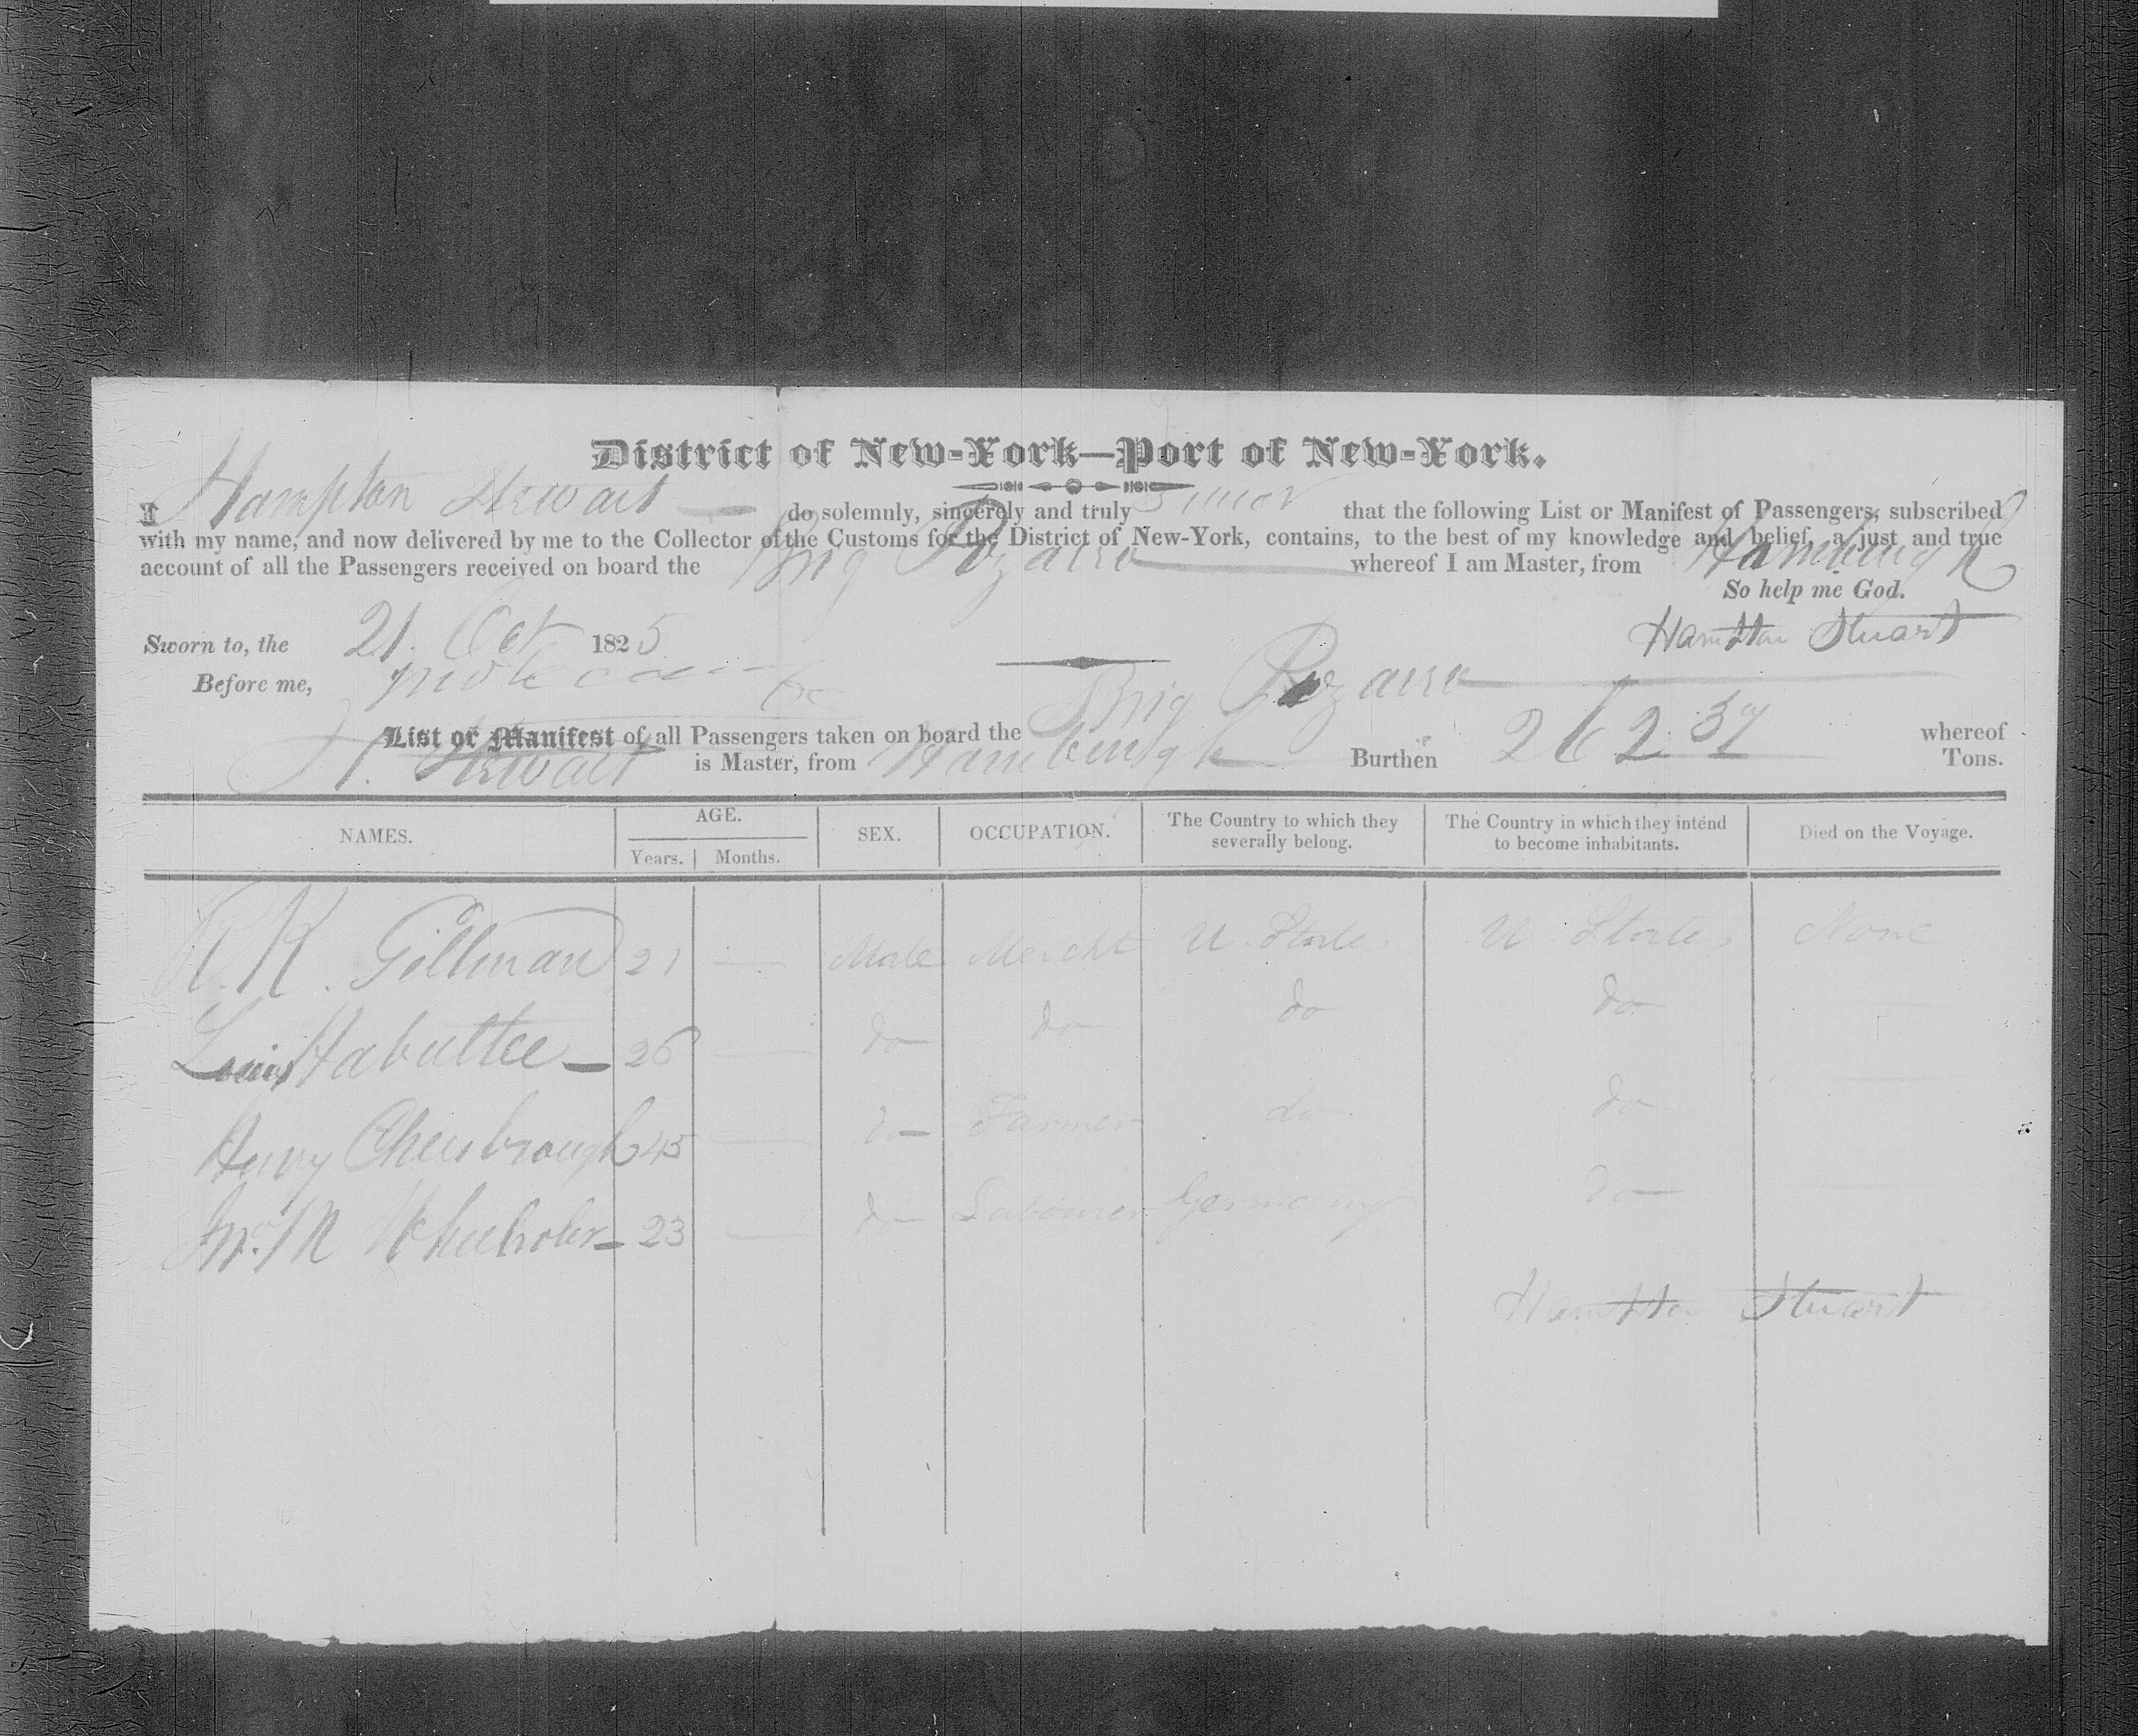 District of New-York—Port of New-York.
I Hampton Stewart — do solemnly, sincerely and truly swear that the following List or Manifest of Passengers, subscribed
with my name, and now delivered by me to the Collector of the Customs for the District of New-York, contains, to the best of my knowledge and belief, a just and true
account of all the Passengers received on board the Brig Pizarro whereof I am Master, from Hamburgh
So help me God.
Sworn to, the 21. Oct 1825 Hampton Stuart
Before me,
List or Manifest of all Passengers taken on board the Brig Pizarro whereof
H. Stewart is Master, from Hamburgh Burthen 262 Tons.
NAMES. AGE. SEX. OCCUPATION. The Country to which they severally belong. The Country in which they intend to become inhabitants. Died on the Voyage.
Years. Months.
R. K. Gillman 21 — Male Mercht U. States U. States None
Louis Habuttee — 26 — do do do do
Henry Cheesbrough 45 — do Farmer do do
23 — do Labourer Germany do
Hampton Stuart